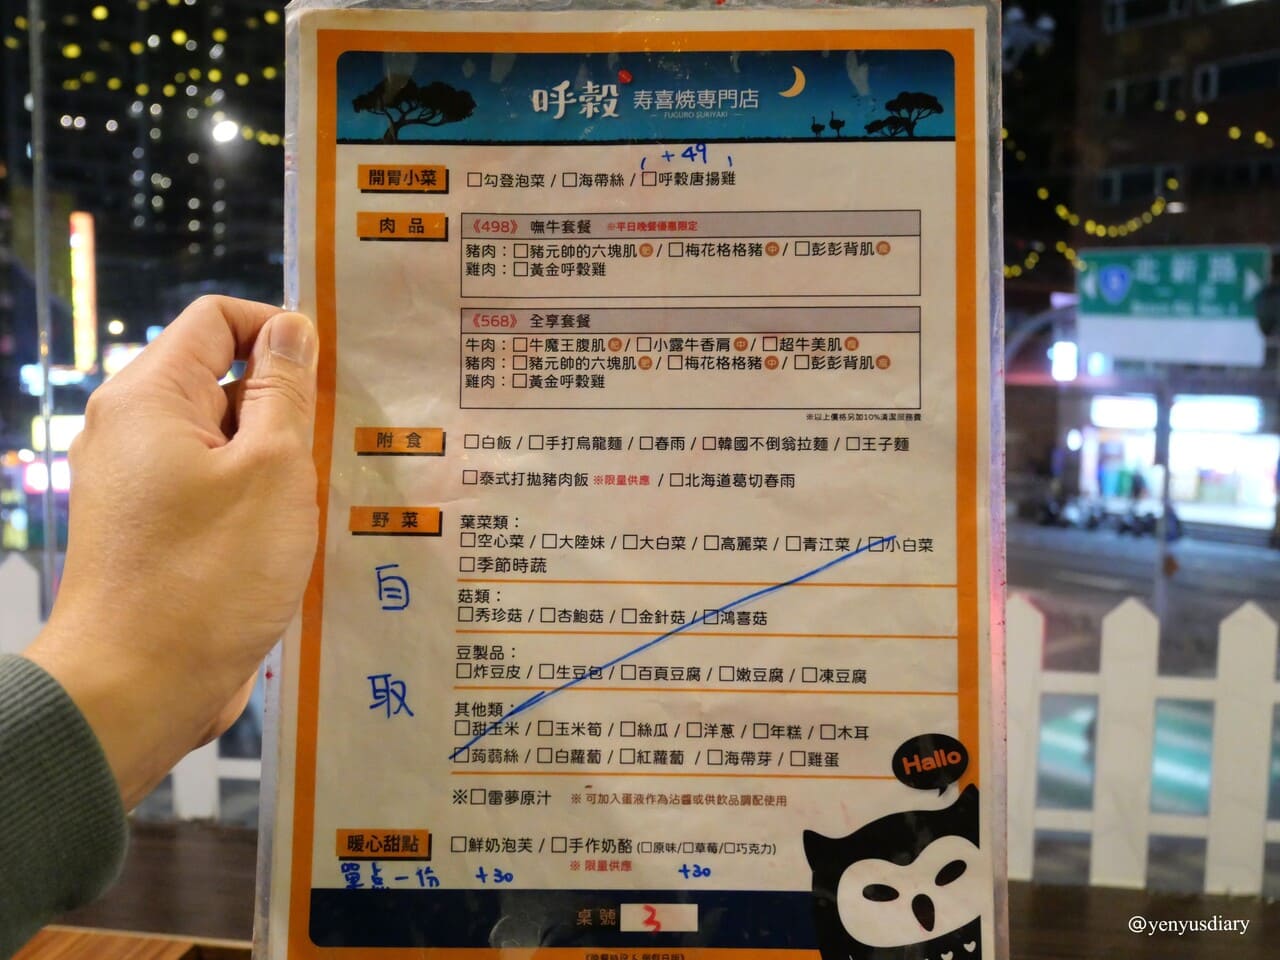 呼穀 寿喜焼専門店
FUGURO SUKIYAKI
(+49)
開胃小菜 □勾登泡菜 / □海帶絲 / □呼穀唐揚雞
肉品
《498》 嘸牛套餐 ※平日晚餐優惠限定
豬肉：□豬元帥的六塊肌 肥 / □梅花格格豬 中 / □彭彭背肌 瘦
雞肉：□黃金呼穀雞
《568》 全享套餐
牛肉：□牛魔王腹肌 肥 / □小露牛香肩 中 / □超牛美肌 瘦
豬肉：□豬元帥的六塊肌 肥 / □梅花格格豬 中 / □彭彭背肌 瘦
雞肉：□黃金呼穀雞
※以上價格另加10%清潔服務費
附食 □白飯 / □手打烏龍麵 / □春雨 / □韓國不倒翁拉麵 / □王子麵
□泰式打拋豬肉飯 ※限量供應 / □北海道葛切春雨
野菜 葉菜類：
□空心菜 / □大陸妹 / □大白菜 / □高麗菜 / □青江菜 / □小白菜
□季節時蔬
自取
菇類：
□秀珍菇 / □杏鮑菇 / □金針菇 / □鴻喜菇
豆製品：
□炸豆皮 / □生豆包 / □百頁豆腐 / □嫩豆腐 / □凍豆腐
其他類：
□甜玉米 / □玉米筍 / □絲瓜 / □洋蔥 / □年糕 / □木耳
□蒟蒻絲 / □白蘿蔔 / □紅蘿蔔 / □海帶芽 / □雞蛋
※□雷夢原汁 ※可加入蛋液作為沾醬或供飲品調配使用
Hallo
暖心甜點 □鮮奶泡芙 / □手作奶酪 (□原味/□草莓/□巧克力)
※限量供應
單点一份 +30 +30
桌號 3
北新路
@yenyusdiary